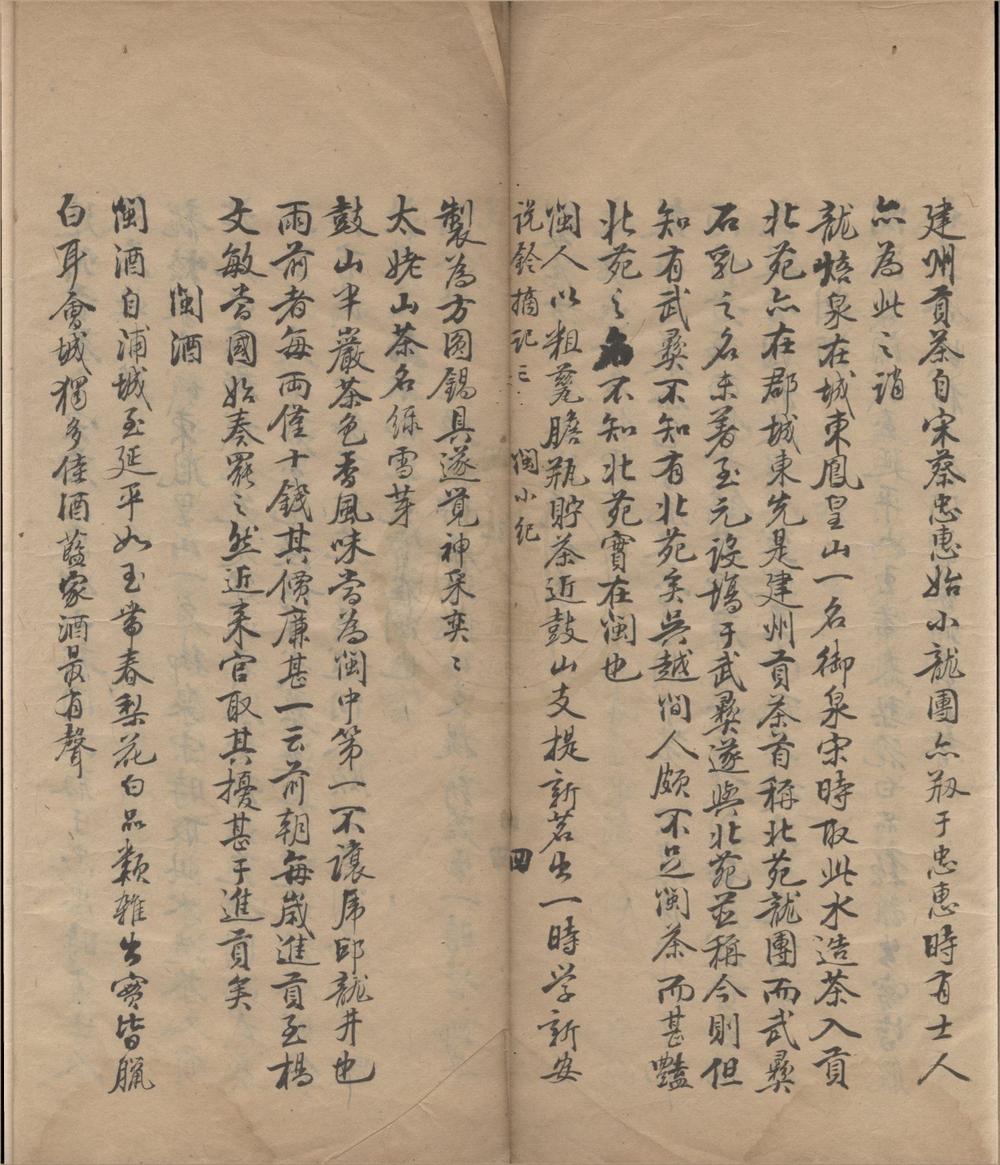 建州貢茶自宋蔡忠惠始小龍團亦剏于忠惠時有士人
亦為此之誚
龍焙泉在城東鳳皇山一名御泉宋時取此水造茶入貢
北苑亦在郡城東先是建州貢茶首稱北苑龍團而武彝
石乳之名未著至元設塲于武彝遂與北苑並稱今則但
知有武彝不知有北苑矣吳越間人頗不足閩茶而甚豔
北苑之名不知北苑實在閩也
閩人以粗甆膽瓶貯茶近鼓山支提新茗出一時学新安
说鈴摘记三 閩小紀 四
製為方圓錫具遂覺神采奕〻
太姥山茶名綠雪芽
鼓山半巖茶色香風味當為閩中第一不讓虎邱龍井也
雨前者每兩僅十錢其價廉甚一云前朝每歲進貢至楊
文敏當國始奏罷之然近来官取其擾甚于進貢矣
閩酒
閩酒自浦城至延平如玉帶春梨花白品類雜出實皆臘
白耳會城獨多佳酒藍家酒最有聲